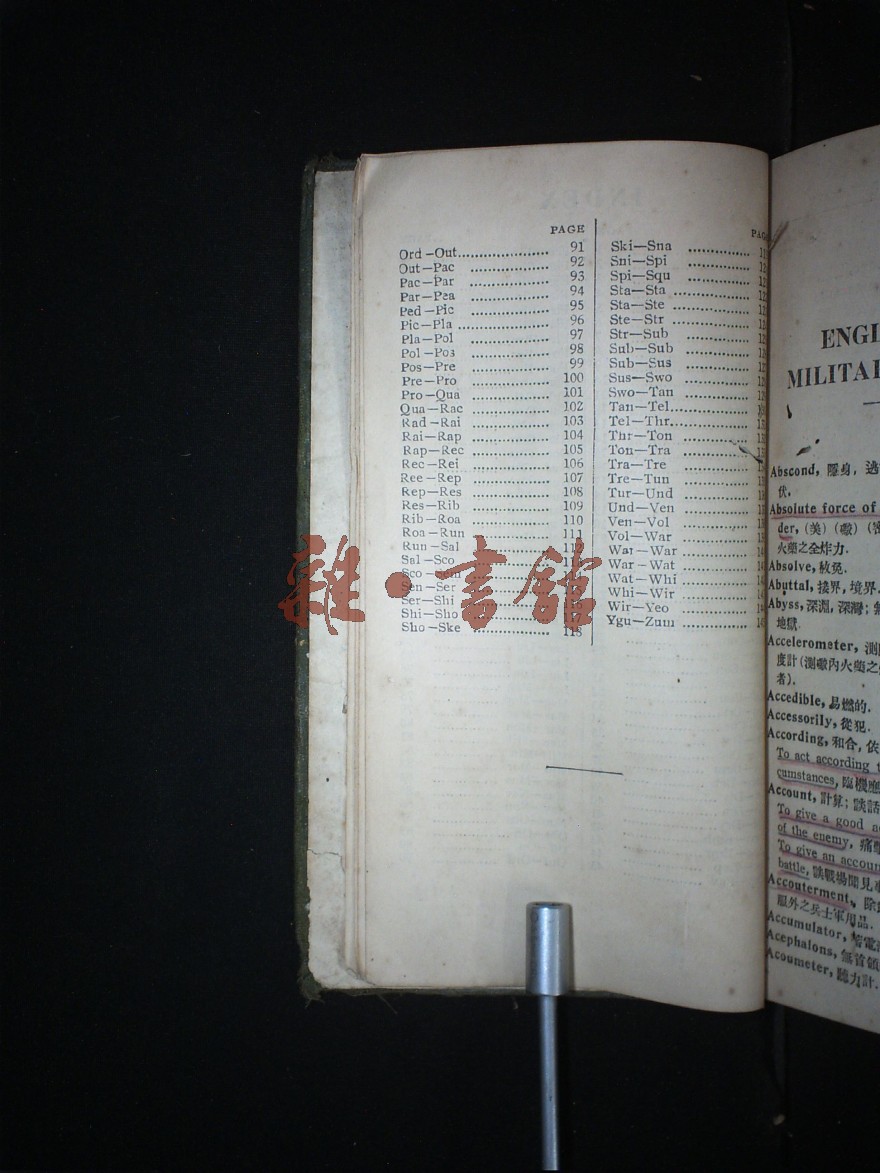 PAGE
Ord—Out 91
Out—Pac 92
Pac—Par 93
Par—Pea 94
Ped—Pic 95
Pic—Pla 96
Pla—Pol 97
Pol—Pos 98
Pos—Pre 99
Pre—Pro 100
Pro—Qua 101
Qua—Rac 102
Rad—Rai 103
Rai—Rap 104
Rap—Rec 105
Rec—Rei 106
Ree—Rep 107
Rep—Res 108
Res—Rib 109
Rib—Roa 110
Roa—Run 111
Run—Sal
Sal—Sco
Sco
Sen—Ser
Ser—Shi
Shi—Sho
Sho—Ske 118
Ski—Sna
Sni—Spi
Spi—Squ
Sta—Sta
Sta—Ste
Ste—Str
Str—Sub
Sub—Sub
Sub—Sus
Sus—Swo
Swo—Tan
Tan—Tel
Tel—Thr
Thr—Ton
Ton—Tra
Tra—Tre
Tre—Tun
Tur—Und
Und—Ven
Ven—Vol
Vol—War
War—War
War—Wat
Wat—Whi
Whi—Wir
Wir—Yeo
Ygu—Zum
雜·書館
Abscond, 隱身, 逃
伏.
Absolute force of
der, (美) (礮)
火藥之全炸力.
Absolve, 赦免.
Abuttal, 接界, 境界.
Abyss, 深淵, 深灣;
地獄.
Accelerometer, 測
度計 (測礮內火藥之
者).
Accedible, 易燃的.
Accessorily, 從犯.
According, 和合, 依
To act according
cumstances, 臨機應
Account, 計算; 談話
To give a good
of the enemy, 痛
To give an accoun
battle, 談戰場聞見
Accouterment, 除
服外之兵士軍用品.
Accumulator, 蓄電
Acephalons, 無首領
Acoumeter, 聽力計.